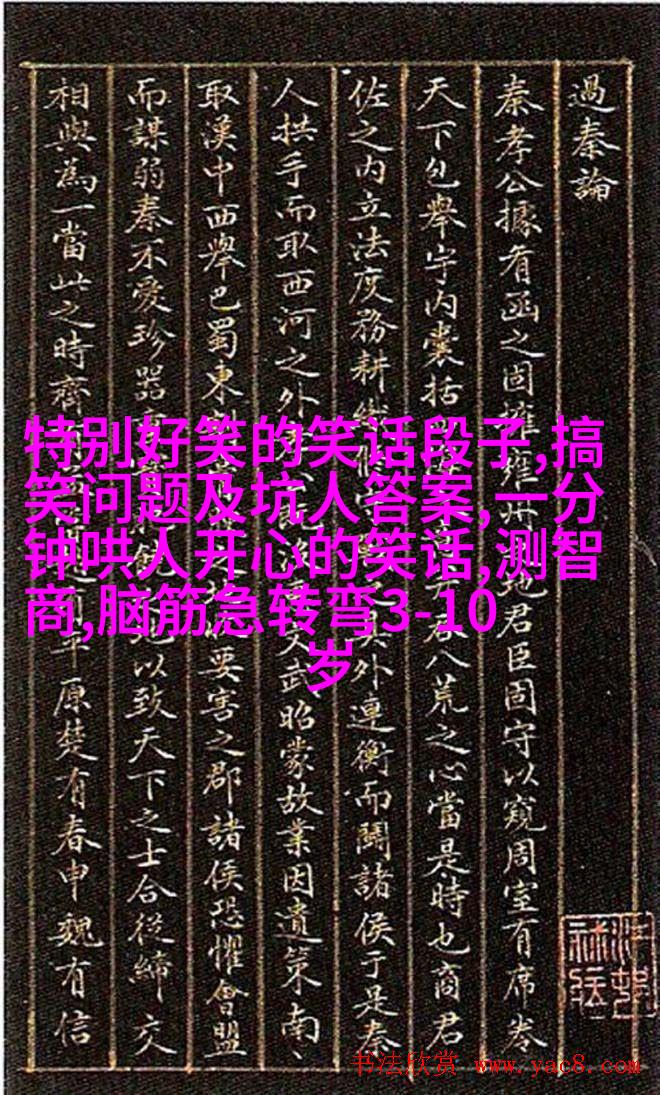 過秦論
秦孝公據有函之固擁雍州地君臣固守以窺周室有席卷
天下包舉宇內囊括八荒之心當是時也商君
佐之內立法度務耕織外連衡而鬪諸侯于是秦
人拱手而取西河之外文武昭蒙故業因遺策南、
取漢中西舉巴蜀東割要害之郡諸侯恐懼會盟
而謀弱秦不愛珍器以致天下之士合從締交
相與為一當此之時齊平原楚有春申魏有信
特别好笑的笑话段子,搞
笑问题及坑人答案,一分
钟哄人开心的笑话,测智
商,脑筋急转弯3-10
岁
书法欣赏 www.yac8.com